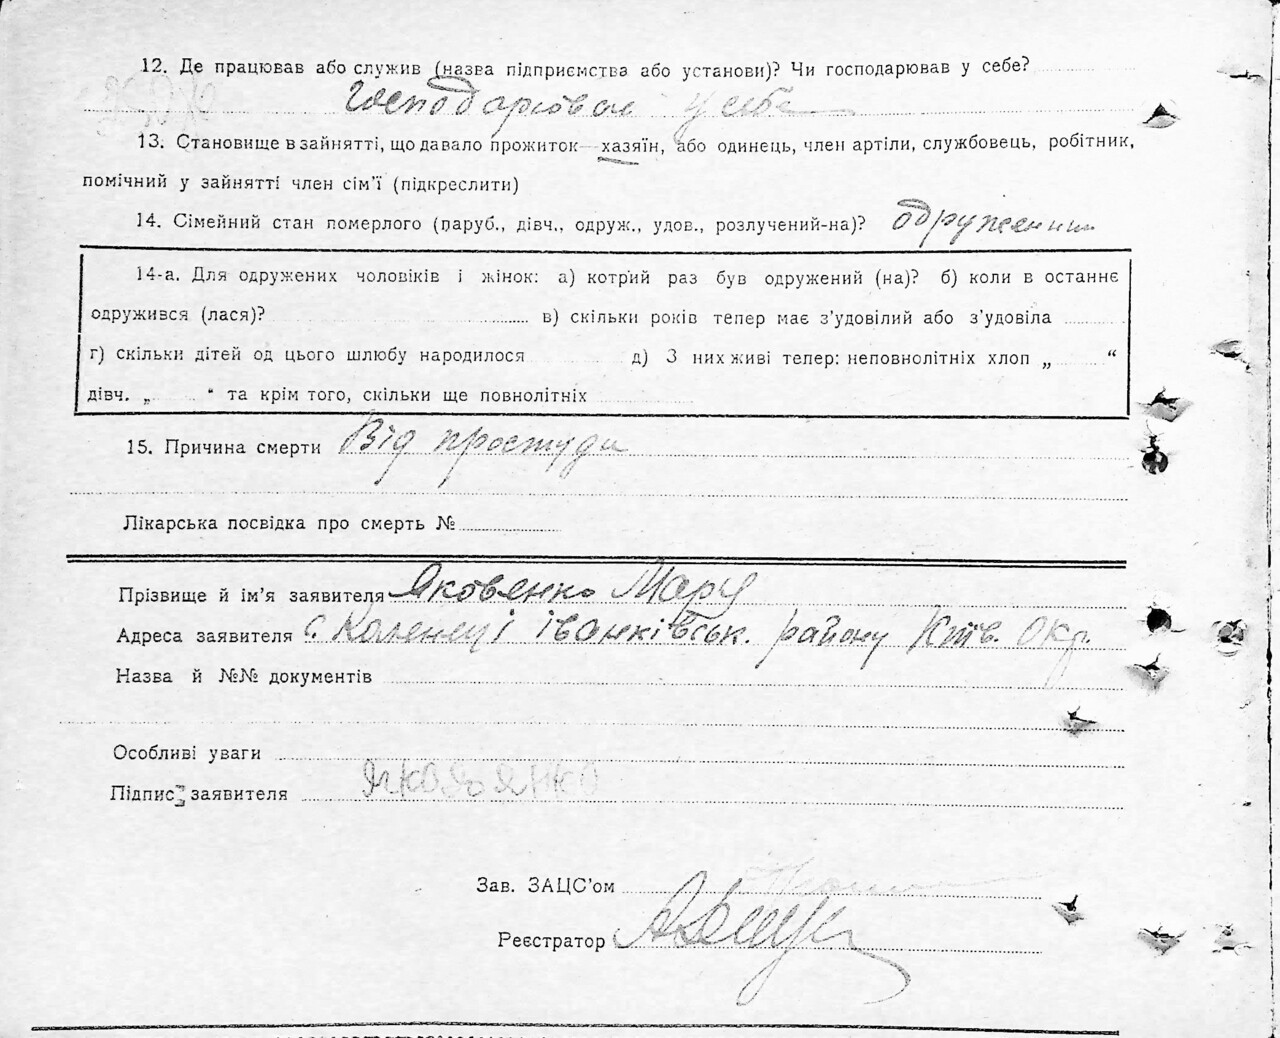 12. Де працював або служив (назва підприємства або установи)? Чи господарював у себе?
Господарював у себе
13. Становище в зайнятті, що давало прожиток—хазяїн, або одинець, член артіли, службовець, робітник,
помічний у зайнятті член сім'ї (підкреслити)
14. Сімейний стан померлого (паруб., дівч., одруж., удов., розлучений-на)? одружений
14-а. Для одружених чоловіків і жінок: а) котрий раз був одружений (на)? б) коли в останнє
одружився (лася)? в) скільки років тепер має з'удовілий або з'удовіла
г) скільки дітей од цього шлюбу народилося д) З них живі тепер: неповнолітніх хлоп „ “
дівч. „ “ та крім того, скільки ще повнолітніх
15. Причина смерти Від простуди
Лікарська посвідка про смерть №
Прізвище й ім'я заявителя Яковенко
Адреса заявителя с. Коленці іванківськ. району Київ. Окр.
Назва й №№ документів
Особливі уваги
Підпис заявителя
Зав. ЗАЦС'ом
Реєстратор